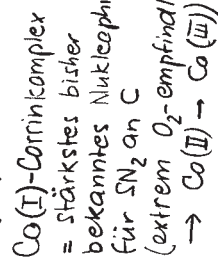 Co(I)-Corrinkomplex
= stärkstes bisher
bekanntes Nukleoph
für SN2 an C
(extrem O₂-empfindl
→ Co(II) → Co(III)